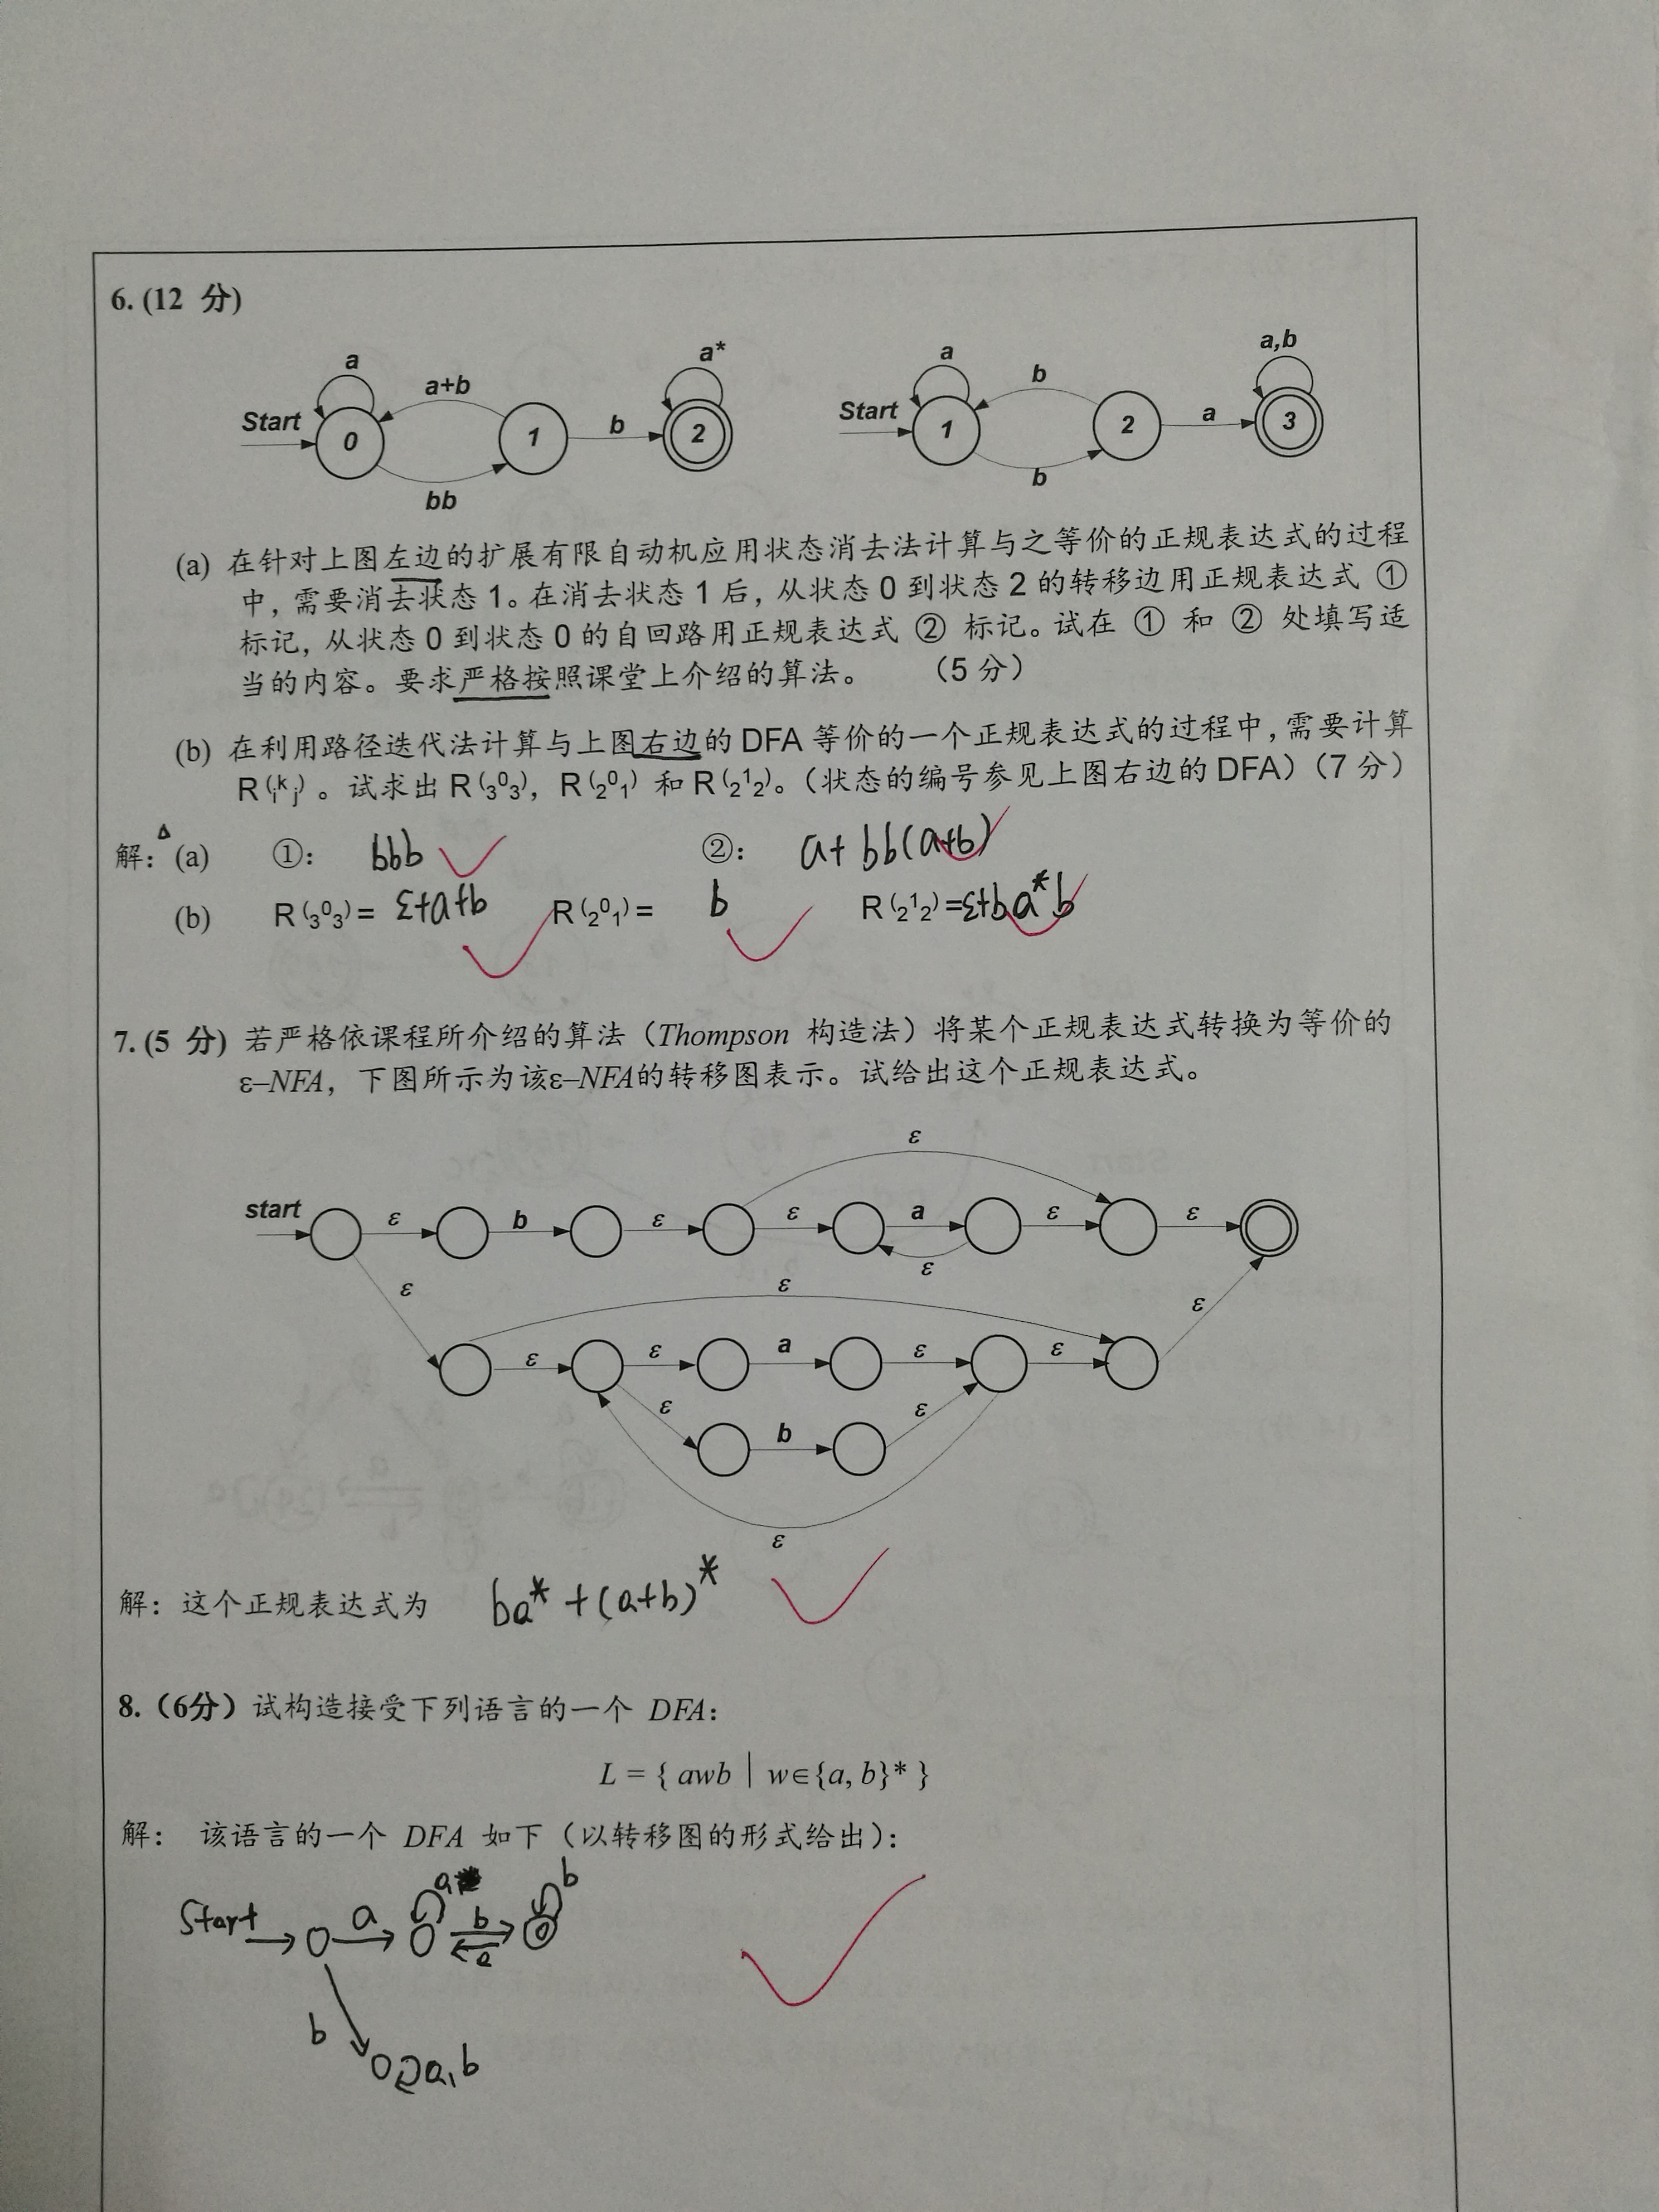 6. (12 分)
a a+b a* a b a,b
Start 0 1 b 2 Start 1 2 a 3
bb b
(a) 在针对上图左边的扩展有限自动机应用状态消去法计算与之等价的正规表达式的过程
中，需要消去状态 1。在消去状态 1 后，从状态 0 到状态 2 的转移边用正规表达式 ①
标记，从状态 0 到状态 0 的自回路用正规表达式 ② 标记。试在 ① 和 ② 处填写适
当的内容。要求严格按照课堂上介绍的算法。 （5 分）
(b) 在利用路径迭代法计算与上图右边的 DFA 等价的一个正规表达式的过程中，需要计算
R(ᵢᵏⱼ) 。试求出 R(₃⁰₃)，R(₂⁰₁) 和 R(₂¹₂)。（状态的编号参见上图右边的 DFA）（7 分）
解：(a) ①： bbb ②： a+bb(a+b)
(b) R(₃⁰₃)= ε+a+b R(₂⁰₁)= b R(₂¹₂)=ε+ba*b
7. (5 分) 若严格依课程所介绍的算法（Thompson 构造法）将某个正规表达式转换为等价的
ε–NFA，下图所示为该ε–NFA的转移图表示。试给出这个正规表达式。
ε
start ε b ε ε a ε ε
ε ε
ε ε
ε ε a ε ε
ε b ε
ε
解：这个正规表达式为 ba*+(a+b)*
8.（6分）试构造接受下列语言的一个 DFA：
L = { awb | w∈{a, b}* }
解： 该语言的一个 DFA 如下（以转移图的形式给出）：
a b
Start a b
a
b a,b